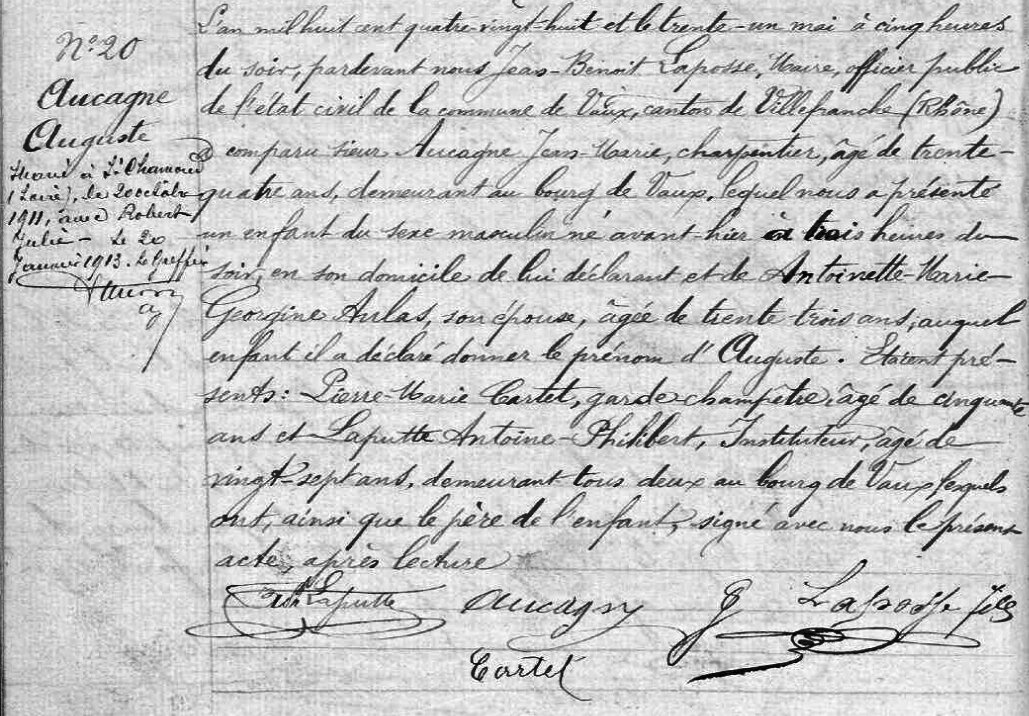 N° 20
Aucagne
Auguste
Marié à St Chamond
(Loire), le 20 octobre
1911, avec Robert
Julie - Le 20
Janvier 1913. Le Greffier
L'an mil huit cent quatre-vingt-huit et le trente-un mai à cinq heures
du soir, pardevant nous Jean-Benoit Laposse, Maire, officier public
de l'état civil de la commune de Vaux, canton de Villefranche (Rhône)
a comparu sieur Aucagne Jean-Marie, charpentier, âgé de trente-
quatre ans, demeurant au bourg de Vaux, lequel nous a présenté
un enfant du sexe masculin né avant-hier à trois heures du
soir, en son domicile de lui déclarant et de Antoinette-Marie-
Georgine Aulas, son épouse, âgée de trente-trois ans, auquel
enfant il a déclaré donner le prénom d'Auguste. Etaient pré-
sents: Pierre-Marie Cartet, garde champêtre, âgé de cinquante
ans et Laputte Antoine-Philibert, Instituteur, âgé de
vingt-sept ans, demeurant tous deux au bourg de Vaux, lesquels
ont, ainsi que le père de l'enfant, signé avec nous le présent
acte, après lecture
Laputte Aucagny Laposse fils
Cartet